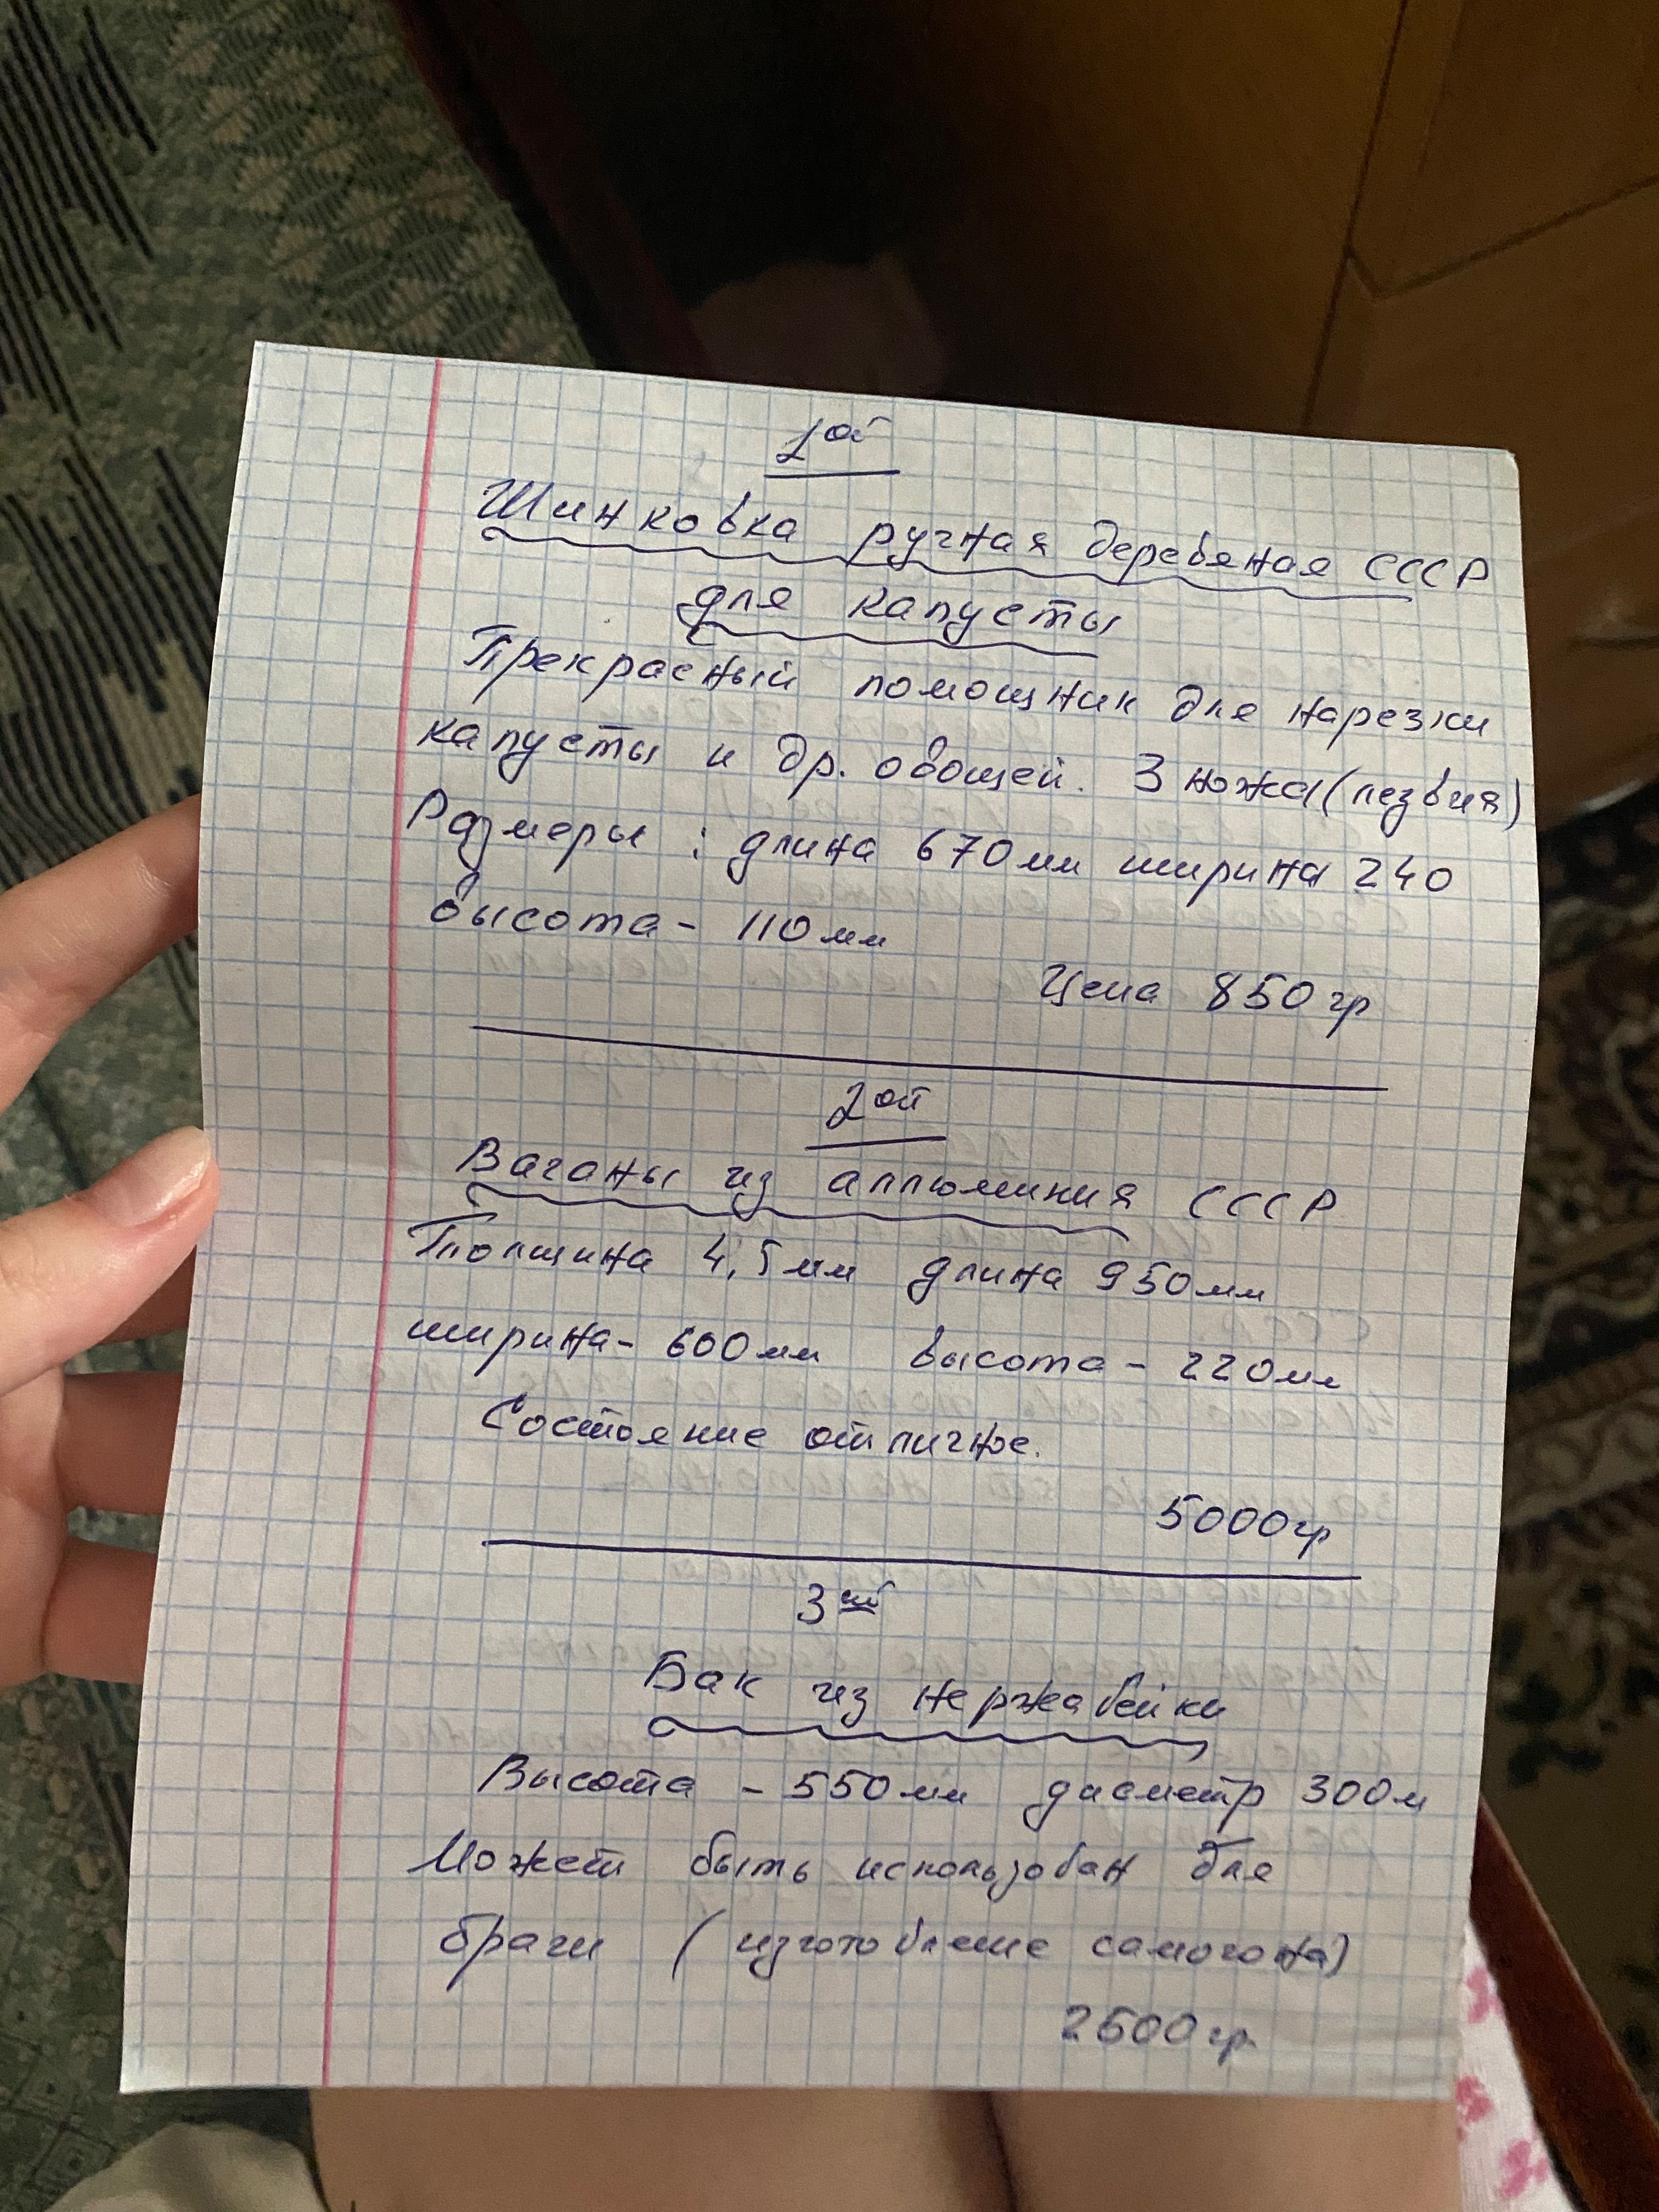 1ой
Шинковка ручная деревяная СССР
для капусты
Прекрасный помощник для нарезки
капусты и др. овощей. 3 ножа (лезвия)
Размеры : длина 670мм ширина 240
высота - 110мм
Цена 850гр
2ой
Ваганы из аллюминия СССР
Толщина 4,5мм длина 950мм
ширина - 600мм высота - 220мм
Состояние отличное.
5000гр
3ий
Бак из нержавейки
Высота - 550мм диаметр 300м
Может быть использован для
браги (изготовление самогона)
2500гр.